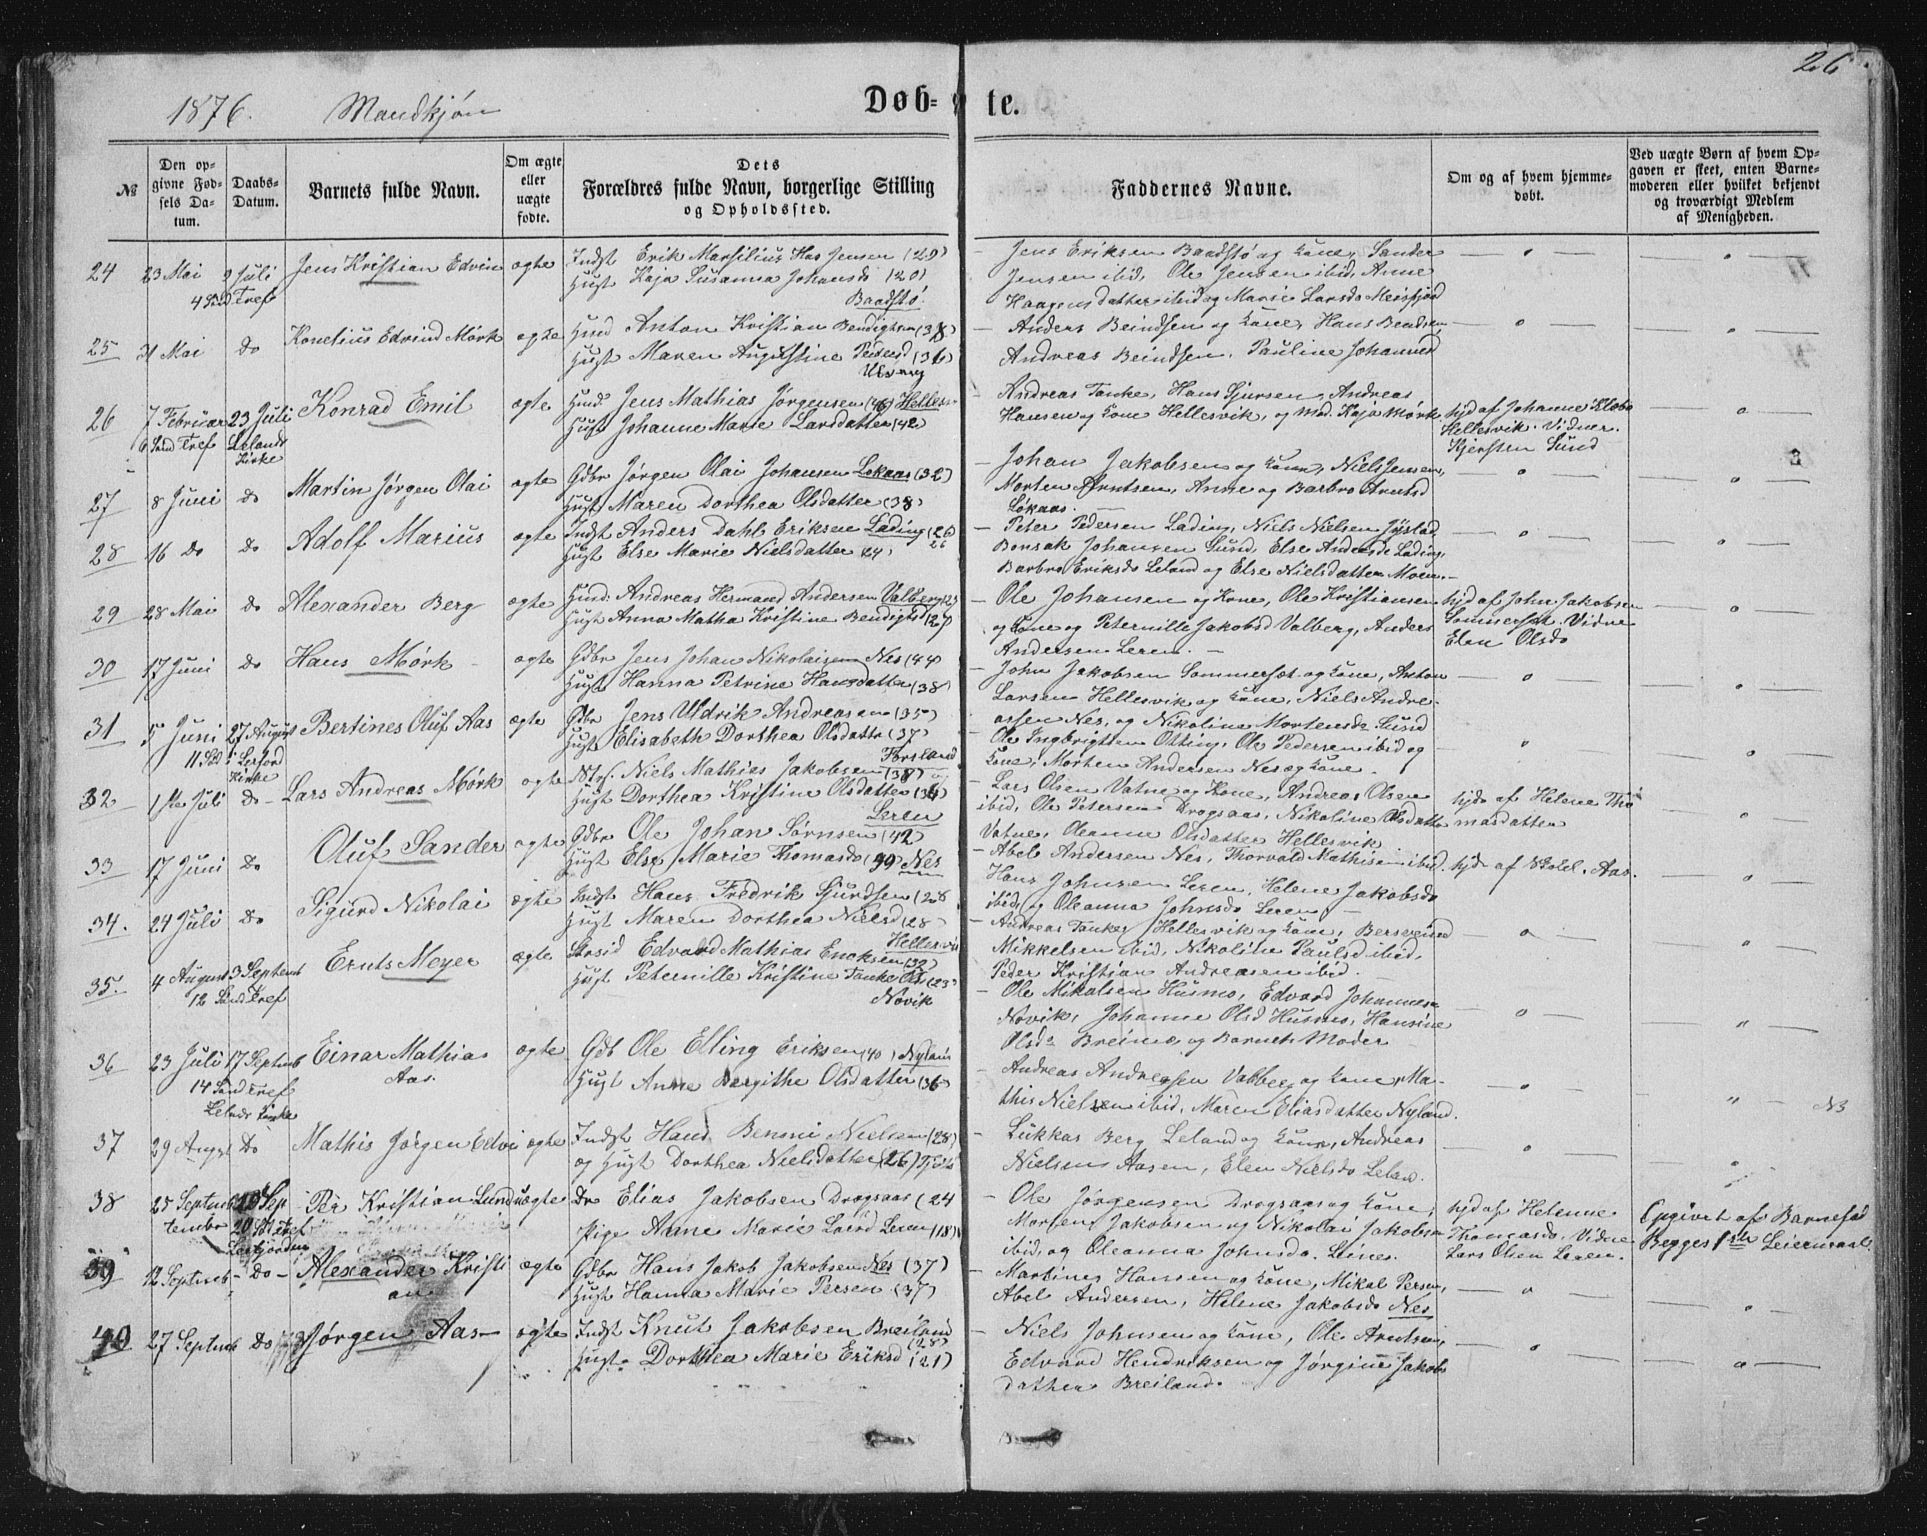 26
1876. Mandkjøn
Døbte.
№
Den opgivne Fødsels Datum.
Daabs-Datum.
Barnets fulde Navn.
Om ægte eller uægte fødte.
Dets Forældres fulde Navn, borgerlige Stilling og Opholdssted.
Faddernes Navne.
Om og af hvem hjemmedøbt.
Ved uægte Børn af hvem Opgaven er skeet, enten Barnemoderen eller hvilket bekjendt og troværdigt Medlem af Menigheden.
24 23 Mai 9 Juli Jens Kristian Edvin ægte Indst Erik Marsilius Jensen (29)
4 Snd Tref Hust Kaja Susanna Johansd (20)
Baadstø
Jens Eriksen Baadstø og Kone, Sander
Jensen ibid, Ole Jensen ibid, Anne
Haagensdatter ibid og Marie Larsd Meisfjord
25 31 Mai do Konelius Edvind Mørk ægte Husd Anton Kristian Bendigtsen (38)
Hust Maren Augustine Pedersd (36)
Anders Beindsen og Kone, Hans Bendsen,
Andreas Beindsen, Pauline Johannesd
26 7 Februar 23 Juli Konrad Emil ægte Husd Jens Mathias Jørgensen (46)
6 Snd Tref Lelands Kirke
Hust Johanne Marie Larsdatter (42)
Andreas Tanke, Hans Sjursen, Andreas
Hansen og Kone Hellesvik, og Mad. Kaja Mørk.
hjd af Johanne Klæbo
Hellesvik. Vidner.
Kjersten Sund
27 8 Juni do Martin Jørgen Olai ægte Gdbr Jørgen Olai Johansen Løkaas (32)
Hust Maren Dorthea Olsdatter (38)
Johan Jakobsen og Kone, Niels Jensen,
Morten Arntsen, Anne og Barbro Arntsd
Løkaas.
28 16 do do Adolf Marius ægte Indst Anders Dahl Eriksen Lading (26)
Hust Else Marie Nielsdatter 24)
Peter Pedersen Lading, Niels Nielsen
Bonsak Johansen Sund, Else Andersd Lading,
Barbro Eriksd Leland og Else Nielsdatter Moen.
29 28 Mai do Alexander Berg ægte Husd: Andreas Hermand Andersen Valberg
Hust Anna Matha Kristine Bendigtsd (27)
Ole Johansen og Kone, Ole Kristiansen
og Kone og Peternille Jakobsd Valberg, Anders
Andersen Leren.
hjd af John Jakobsen
Sommerset. Vidne
Elen Olsd
30 17 Juni do Hans Mørk ægte Gdbr Jens Johan Nikolaisen Nes (44)
Hust Hanna Petrine Hansdatter (38)
John Jakobsen Sommerset og Kone, Anton
Larsen Hellesvik og Kone, Niels Andre-
assen Nes, og Nikoline Mortensd Sund
31 5 Juni 27 August Bertines Oluf Aas ægte Gdbr Jens Uldrik Andreasen (35)
11 Snd i Leifjord Kirke
Hust Elisabeth Dorthea Olsdatter (37)
Forsland
Ole Ingbrigtsen Otting, Ole Pedersen ibid og
Kone, Morten Andersen Nes og Kone.
32 1ste Juli do Lars Andreas Mørk ægte Str. Niels Mathias Jakobsen (38)
Hust Dorthea Kristine Olsdatter
Leren
Lars Olsen Vatne og Kone, Andreas Olsen
ibid, Ole Petersen Dragsaas, Nikoline Olsdatter
Vatne, Oleanne Olsdatter Hellesvik
hjd. af Helene Tho
masdatter
33 17 Juni do Oluf Sander ægte Gdbr Ole Johan Sørnsen (42)
Hust Else Marie Thomasd (39) Nes
Abel Andersen Nes, Thorvald Mathisen ibid.
Hans Johnsen Leren, Helene Jakobsd
ibid, og Oleanna Johnsd Leren
hjd. af Skol. Aas.
34. 24 Juli do Sigurd Nikolai ægte Indst Hans Fredrik Sjurdsen (28
Hust Maren Dorthea Nielsd (28)
Hellesvik
Andreas Tanke, Hellesvik og Kone, Bersvend
Mikkelsen ibid, Nikoline Paulsd ibid,
Peder Kristian Andreasen ibid.
35. 4 August 3 Septemb Ernts Meyer ægte Strsid Edvard Mathias Enoksen (32)
12 Snd Tref
Hust Peternille Kristine Tanke Ols (23)
Novik
Ole Mikalsen Husmo, Edvard Johannesen
Novik, Johanne Olsd Husmo, Hansine
Olsd Breimo og Barnets Moder
36 23 Juli 17 Septemb Einar Mathias Aas. ægte Gdb Ole Elling Eriksen (40) Nyland
14 Snd Tref Lelands Kirke
Hust Anne Bergithe Olsdatter (36)
Andreas Andresen Vabbeg og Kone, Ma-
this Nielsen ibid, Maren Eliasdatter Nyland.
NB
37 29 Augst Do Mathis Jørgen Edvi ægte Indst Hans Benoni Nielsen (28)
og Hust Dorthea Nielsdatter (26)
Lukkas Berg Leland og Kone, Andreas
Nielsen Aasen, Elen Nielsd Leland.
38 25 Septembr Per Kristian Lund uægte Dr Elias Jakobsen Dragsaas (24
20 Snd Tref Leifjorden
Pige Anne Marie Larsd Leren (18)
Ole Jørgensen Dragsaas og Kone,
Morten Jakobsen og Nikolai Jakobsen
ibid, og Oleanna Johnsd. Leines.
hjd af Helenne
Thomasd. Vidne
Lars Olsen Leren.
Opgivet af Barnefad
Begges 1ste Leiermaal
39 12 Septemb - Do - Alexander Kristian ægte Gdbr Hans Jakob Jakobsen Nes (37)
Hust Hanna Marie Persen (37)
Martines Hansen og Kone, Mikal Persen,
Abel Andersen, Helene Jakobsd Nes
40 27 Septemb Do Jørgen Aas ægte Indst Knut Jakobsen Breiland (28)
Hust. Dorthea Marie Eriksd (21)
Niels Johnsen og Kone, Ole Arntsen,
Edvard Hendriksen og Jørgine Jakobs
datter Breiland.